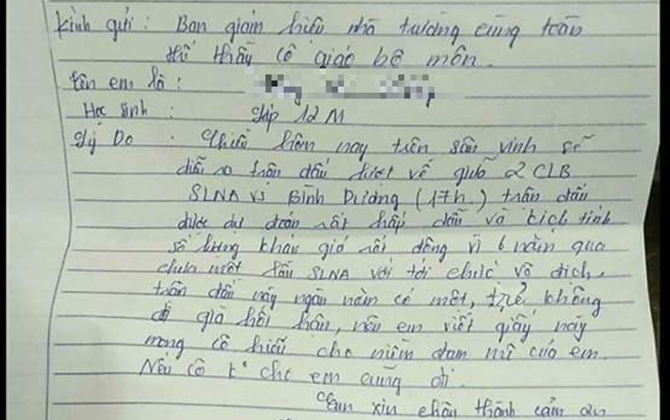 Kính gửi : Ban giám hiệu nhà trường cùng toàn
thể thầy cô giáo bộ môn.
Tên em là :
Học sinh : Lớp 12M
Lý Do : Chiều hôm nay trên sân vinh sẽ
diễn ra trận đấu lượt về giữa 2 CLB
SLNA vs Bình Dương (17h) trận đấu
được dự đoán rất hấp dẫn và kịch tính
số lượng khán giả rất đông vì 6 năm qua
chưa một lần SLNA với tới chức vô địch.
trận đấu này ngàn năm có một, trẻ không
đi già hối hận, nên em viết giấy này
mong cô hiểu cho niềm đam mê của em.
Nếu cô k cho em cũng đi.
Em xin chân thành cảm ơn